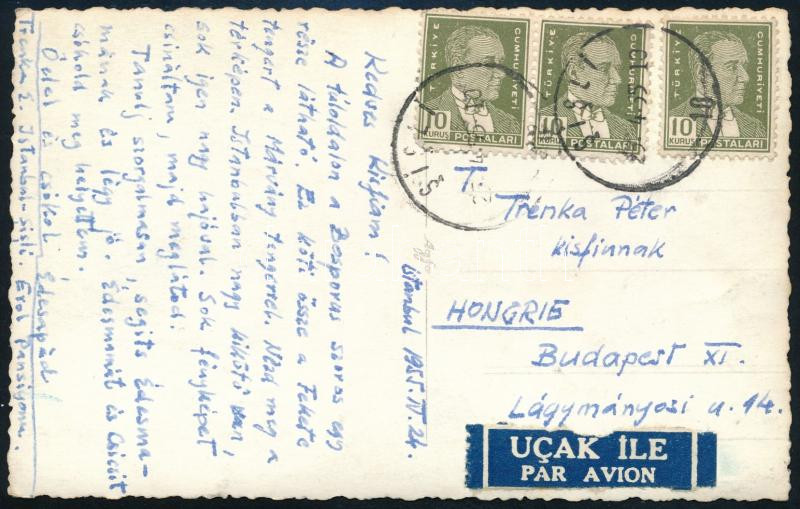 Istanbul 1955. IV. 24.
Kedves Kisfiam!
A túloldalon a Boszporus szoros egy
része látható. Ez köti össze a Fekete
tengert a Márvány tengerrel. Nézd meg a
térképen. Istanbulban nagy kikötő van,
sok ilyen nagy hajóval. Sok fényképet
csináltam, majd meglátod.
Tanulj szorgalmasan, segíts Édesma-
mának és légy jó. Édesmamát és Csicsit
csókold meg helyettem.
Ölel és csókol Édesapád
Trenka I. Istanbul-Sisli. Erol Pansiyonu.
TÜRKİYE CUMHURİYETİ
10 KURUŞ POSTALARI
TÜRKİYE CUMHURİYETİ
10 KURUŞ POSTALARI
TÜRKİYE CUMHURİYETİ
10 KURUŞ POSTALARI
ŞİŞLİ
ŞİŞLİ
Agfa
T.
Trénka Péter
kisfiunak
HONGRIE
Budapest XI.
Lágymányosi u. 14.
UÇAK İLE
PAR AVION